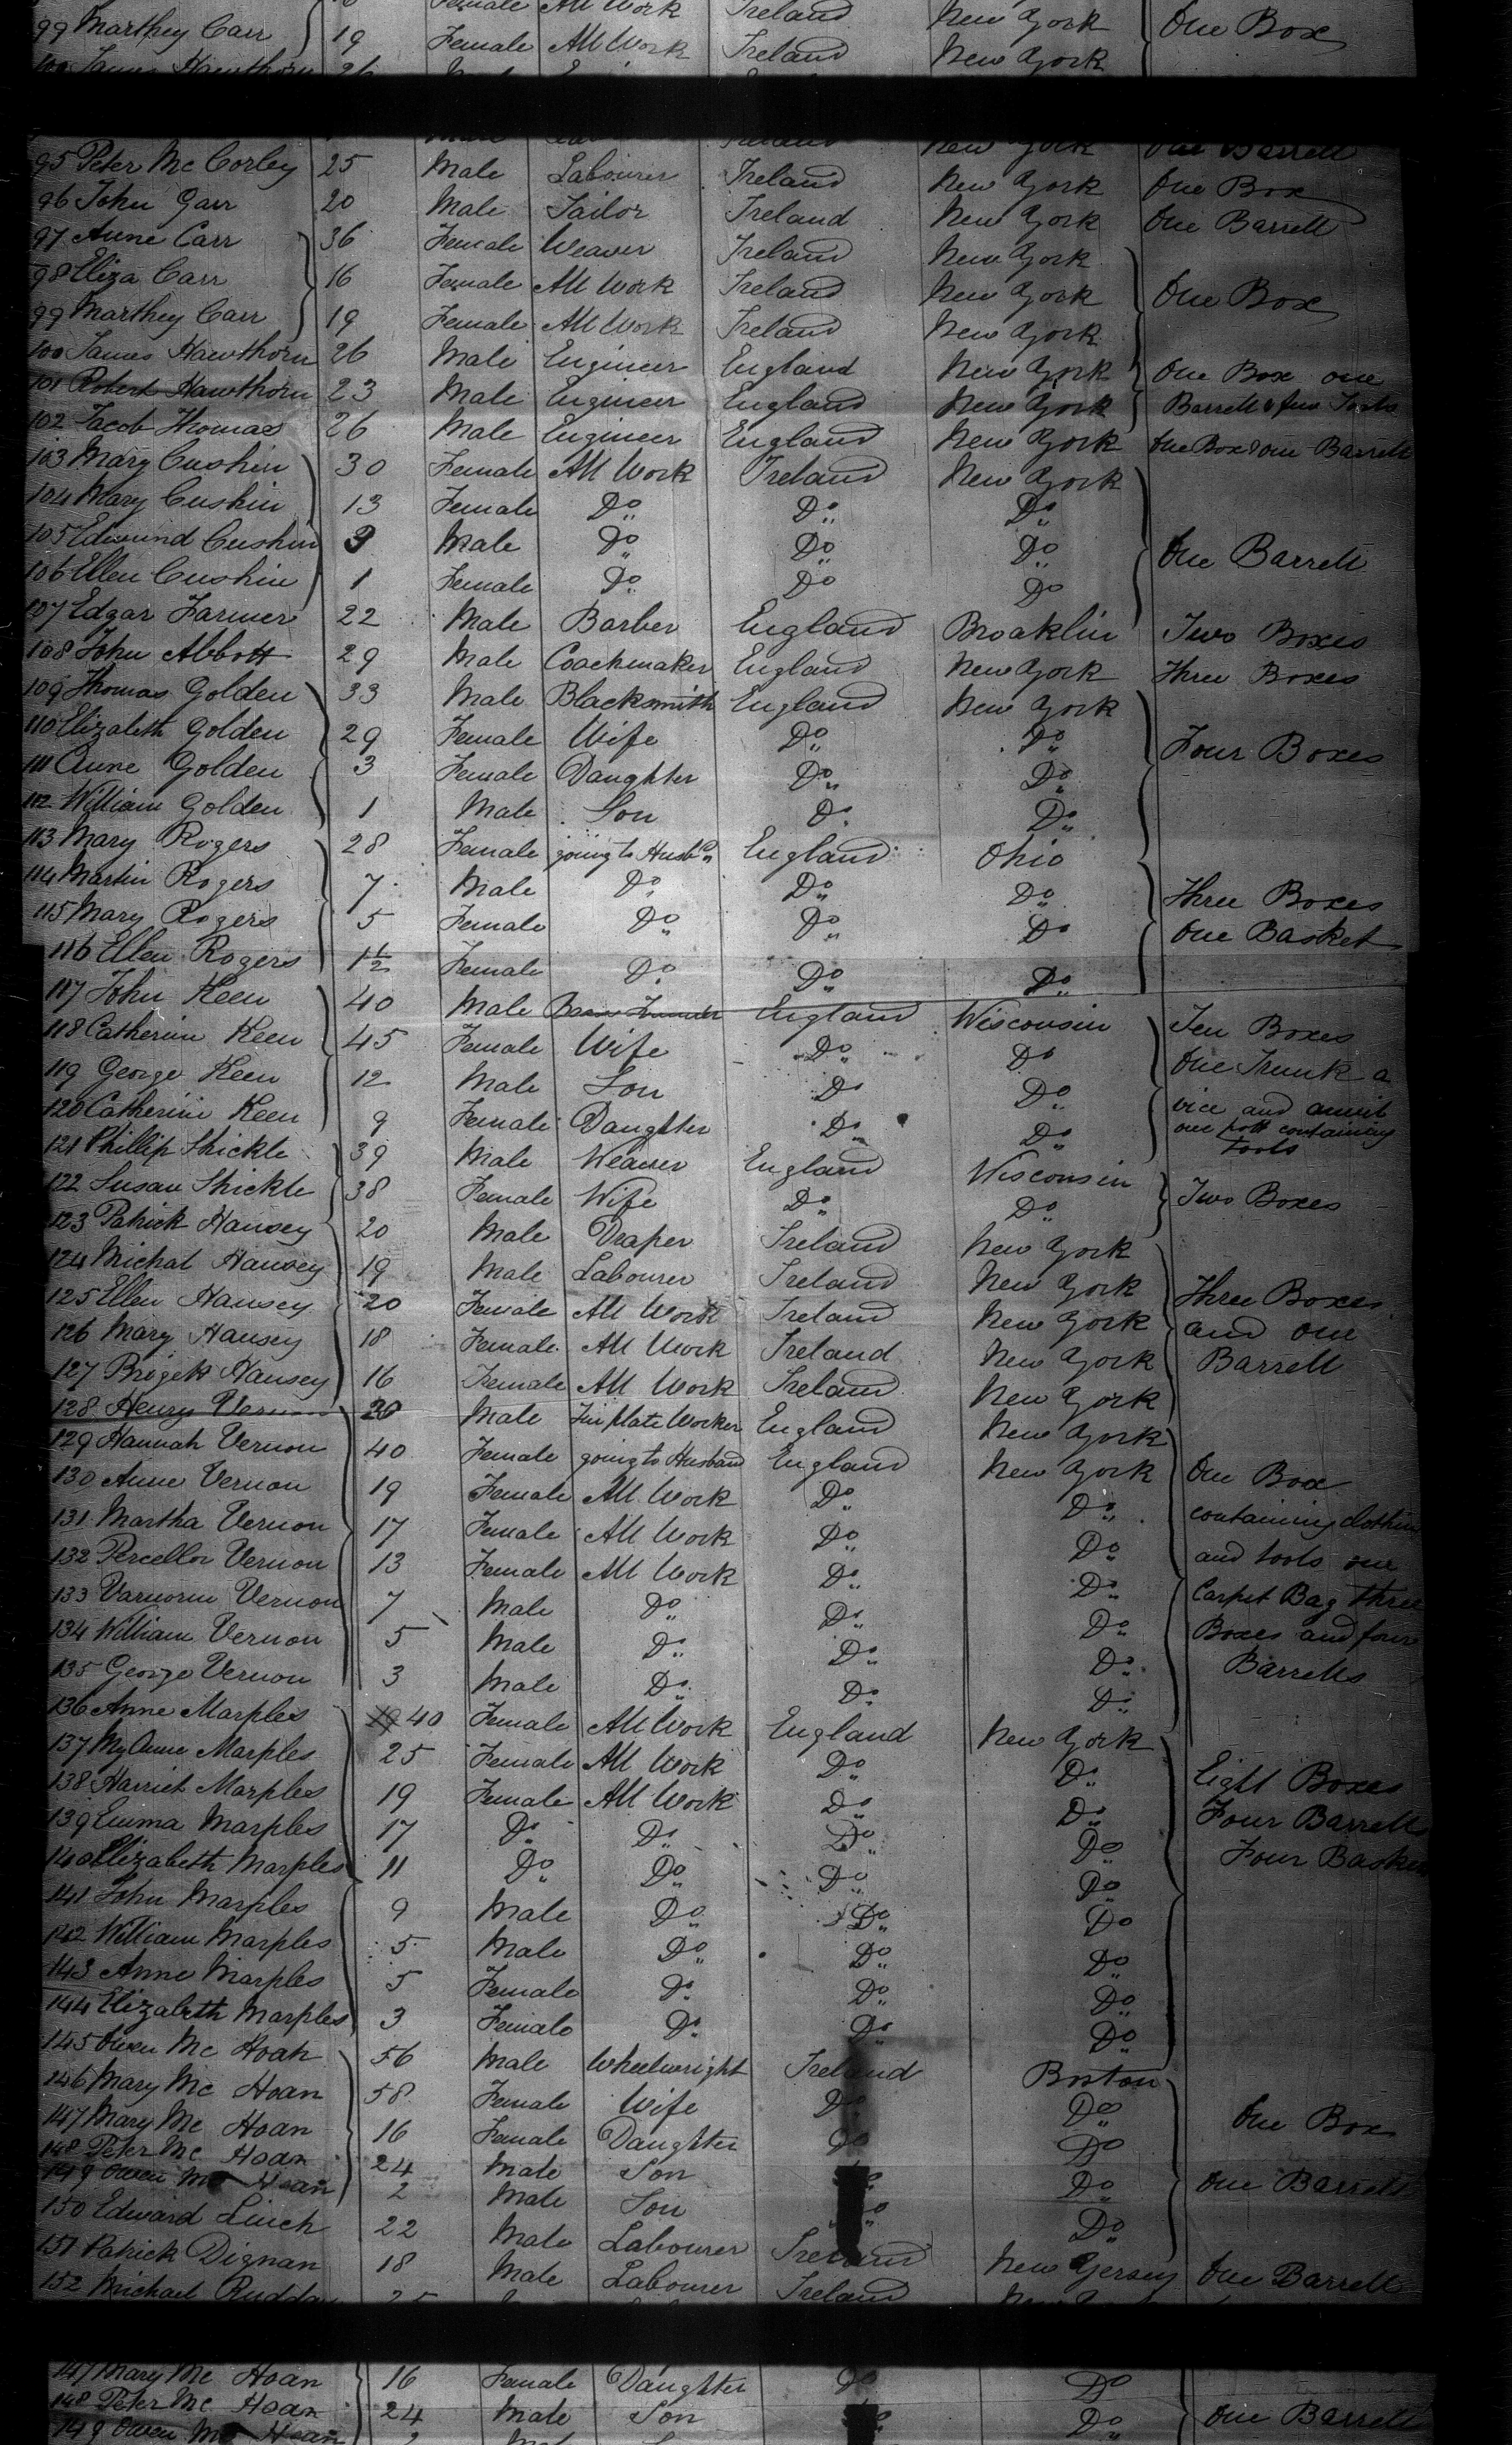 Female All Work Ireland New York
99 Marthey Carr 19 Female All Work Ireland New York One Box
100 James Hawthorn 26
New York One Barrell
95 Peter Mc Corley 25 Male Labourer Ireland New York One Box
96 John Garr 20 Male Tailor Ireland New York One Barrell
97 Anne Carr 36 Female Weaver Ireland New York
98 Eliza Carr 16 Female All Work Ireland New York One Box
99 Marthey Carr 19 Female All Work Ireland New York
100 James Hawthorn 26 Male Engineer England New York One Box one
101 Robert Hawthorn 23 Male Engineer England New York Barrell & few Tools
102 Jacob Thomas 26 Male Engineer England New York One Box & one Barrell
103 Mary Cushin 30 Female All Work Ireland New York
104 Mary Cushin 13 Female Do Do Do
105 Edmund Cushin 3 Male Do Do Do One Barrell
106 Ellen Cushin 1 Female Do Do Do
107 Edgar Farmer 22 Male Barber England Broaklin Two Boxes
108 John Abbott 29 Male Coachmaker England New York Three Boxes
109 Thomas Golden 33 Male Blacksmith England New York
110 Elizabeth Golden 29 Female Wife Do Do Four Boxes
111 Anne Golden 3 Female Daughter Do Do
112 William Golden 1 Male Son Do Do
113 Mary Rogers 28 Female going to Husbd England Ohio
114 Martin Rogers 7 Male Do Do Do Three Boxes
115 Mary Rogers 5 Female Do Do Do One Basket
116 Ellen Rogers 1½ Female Do Do Do
117 John Keen 40 Male England Wisconsin Ten Boxes
118 Catherine Keen 45 Female Wife Do Do One Trunk a
119 George Keen 12 Male Son Do Do vice and anvil
120 Catherine Keen 9 Female Daughter Do Do one pott containing tools
121 Phillip Shickle 39 Male Weaver England Wisconsin
122 Susan Shickle 38 Female Wife Do Do Two Boxes
123 Patrick Hansey 20 Male Draper Ireland New York
124 Michal Hansey 19 Male Labourer Ireland New York
125 Ellen Hansey 20 Female All Work Ireland New York Three Boxes
126 Mary Hansey 18 Female All Work Ireland New York and one
127 Brigett Hansey 16 Female All Work Ireland New York Barrell
128 Henry Vernon 20 Male Tin plate Worker England New York
129 Hannah Vernon 40 Female going to Husband England New York One Box
130 Anne Vernon 19 Female All Work Do Do containing clothing
131 Martha Vernon 17 Female All Work Do Do and tools one
132 Percellor Vernon 13 Female All Work Do Do Carpet Bag three
133 Varnorm Vernon 7 Male Do Do Do Boxes and four
134 William Vernon 5 Male Do Do Do Barrells
135 George Vernon 3 Male Do Do Do
136 Anne Marples 40 Female All Work England New York
137 My Anne Marples 25 Female All Work Do Do Eight Boxes
138 Harriet Marples 19 Female All Work Do Do Four Barrell
139 Emma Marples 17 Do Do Do Do Four Basket
140 Elizabeth Marples 11 Do Do Do Do
141 John Marples 9 Male Do Do Do
142 William Marples 5 Male Do Do Do
143 Anne Marples 5 Female Do Do Do
144 Elizabeth Marples 3 Female Do Do Do
145 Owen Mc Hoan 56 Male Wheelwright Ireland Boston
146 Mary Mc Hoan 58 Female Wife Do Do One Box
147 Mary Mc Hoan 16 Female Daughter Do Do
148 Peter Mc Hoan 24 Male Son Do One Barrell
149 Owen Mc Hoan 2 Male Son Do
150 Edward Linch 22 Male Labourer Ireland New Gersey One Barrell
151 Patrick Dignan 18 Male Labourer Ireland
152 Michael Rudda 25
147 Mary Mc Hoan 16 Female Daughter Do Do
148 Peter Mc Hoan 24 Male Son Do One Barrell
149 Owen Mc Hoan